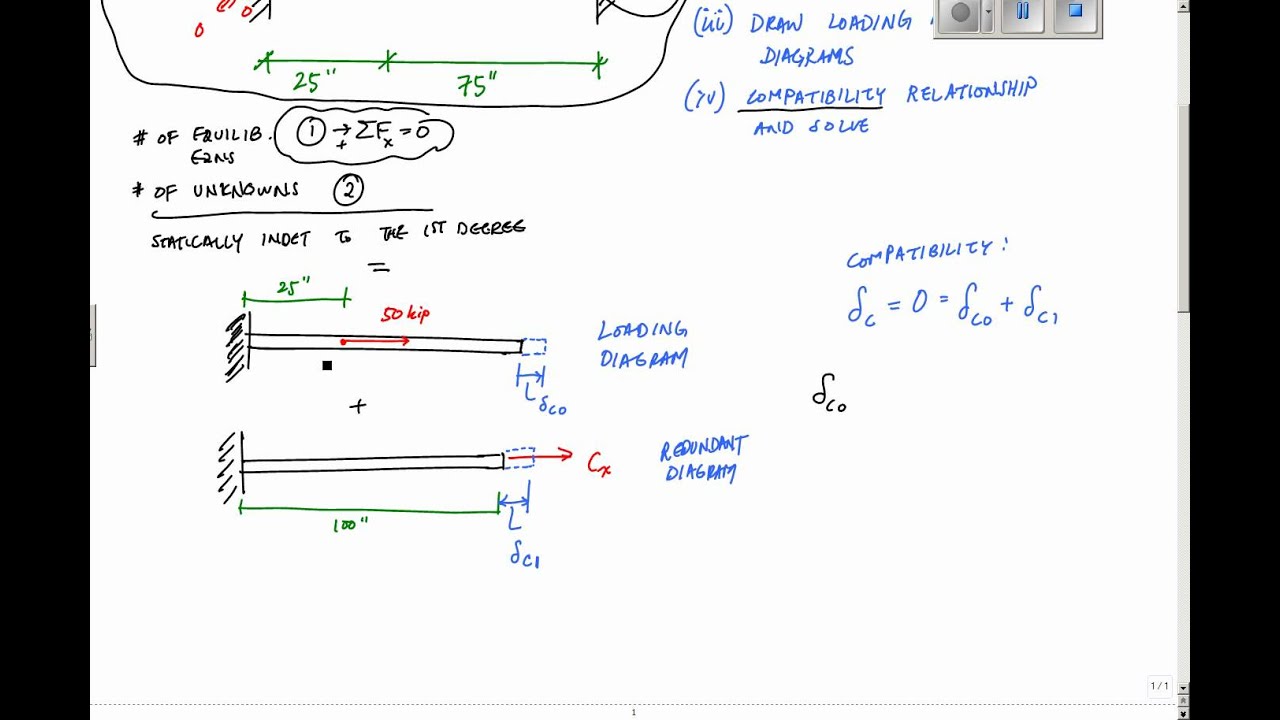 (iii) DRAW LOADING
DIAGRAMS
(iv) COMPATIBILITY RELATIONSHIP
AND SOLVE
0
0
25"
75"
# OF EQUILIB.
EQNS
1 → + ΣFx = 0
# OF UNKNOWNS 2
STATICALLY INDET TO THE 1ST DEGREE
=
25"
50 kip
LOADING
DIAGRAM
δC0
+
Cx
REDUNDANT
DIAGRAM
100"
δC1
COMPATIBILITY:
δC = 0 = δC0 + δC1
δC0
1/1
1